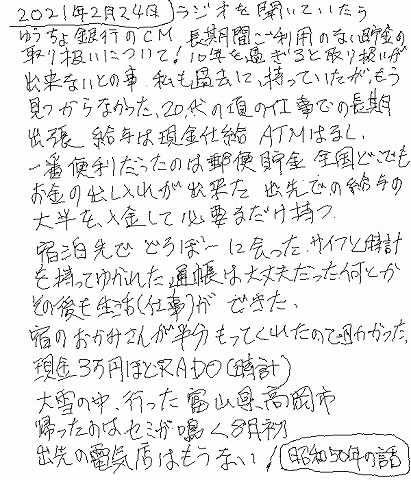 2021年2月24日 ラジオを聞いていたら
ゆうちょ銀行のCM 長期間ご利用のない貯金の
取り扱いについて! 10年を過ぎると取り扱いが
出来ないとの事、私も過去に、持っていたが、もう
見つからなかった、20代の頃の仕事での長期
出張 給与は現金仕給 ATMはなし、
一番便利だったのは郵便貯金 全国どこでも
お金の出し入れが出来た 出先での給与の
大半を、入金して必要なだけ持つ、
宿泊先で どろぼーに会った、サイフと時計
を持ってゆかれた、通帳は大丈夫だった何とか
その後も生活(仕事)が できた、
宿のおかみさんが半分もってくれたので助かった、
現金3万円ほどRADO(時計)
大雪の中、行った富山県、高岡市
帰ったのは、セミが鳴く8月初
出先の電気店はもうない! 昭和50年の話